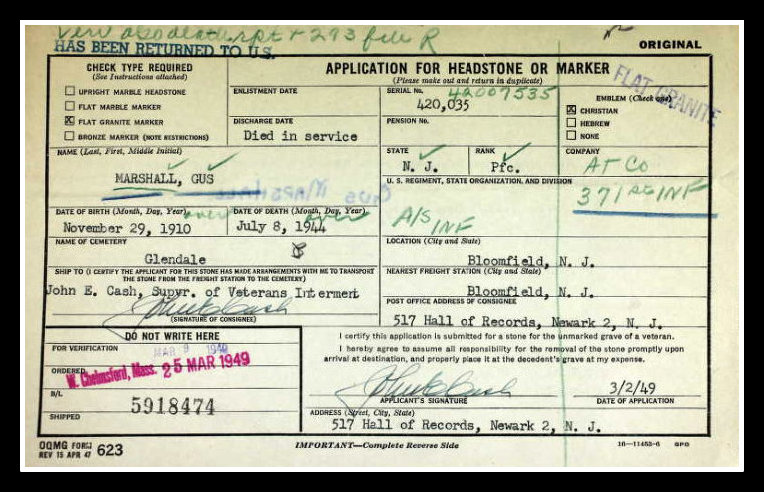 rpt + 293 file R
HAS BEEN RETURNED TO U.S.
ORIGINAL
CHECK TYPE REQUIRED
(See Instructions attached)
UPRIGHT MARBLE HEADSTONE
FLAT MARBLE MARKER
FLAT GRANITE MARKER
BRONZE MARKER (NOTE RESTRICTIONS)
APPLICATION FOR HEADSTONE OR MARKER
(Please make out and return in duplicate)
FLAT GRANITE
ENLISTMENT DATE
DISCHARGE DATE
Died in service
SERIAL No.
42007535
420,035
PENSION No.
EMBLEM (Check one)
CHRISTIAN
HEBREW
NONE
NAME (Last, First, Middle Initial)
MARSHALL, GUS
GUS MARSHALL
STATE
N. J.
RANK
Pfc.
COMPANY
AT CO
U. S. REGIMENT, STATE ORGANIZATION, AND DIVISION
371 INF
A/S INF
DATE OF BIRTH (Month, Day, Year)
over
November 29, 1910
DATE OF DEATH (Month, Day, Year)
over
July 8, 1944
NAME OF CEMETERY
Glendale
LOCATION (City and State)
Bloomfield, N. J.
SHIP TO (I CERTIFY THE APPLICANT FOR THIS STONE HAS MADE ARRANGEMENTS WITH ME TO TRANSPORT
THE STONE FROM THE FREIGHT STATION TO THE CEMETERY)
John E. Cash, Supvr. of Veterans Interment
John E Cash
(SIGNATURE OF CONSIGNEE)
NEAREST FREIGHT STATION (City and State)
Bloomfield, N. J.
POST OFFICE ADDRESS OF CONSIGNEE
517 Hall of Records, Newark 2, N. J.
DO NOT WRITE HERE
FOR VERIFICATION
MAR 9 1949
ORDERED
W. Chelmsford, Mass. 25 MAR 1949
B/L
5918474
SHIPPED
I certify this application is submitted for a stone for the unmarked grave of a veteran.
I hereby agree to assume all responsibility for the removal of the stone promptly upon
arrival at destination, and properly place it at the decedent's grave at my expense.
John E Cash
APPLICANT'S SIGNATURE
3/2/49
DATE OF APPLICATION
ADDRESS (Street, City, State)
517 Hall of Records, Newark 2, N. J.
OQMG FORM
REV 15 APR 47 623
IMPORTANT—Complete Reverse Side
16—11453-6 GPO